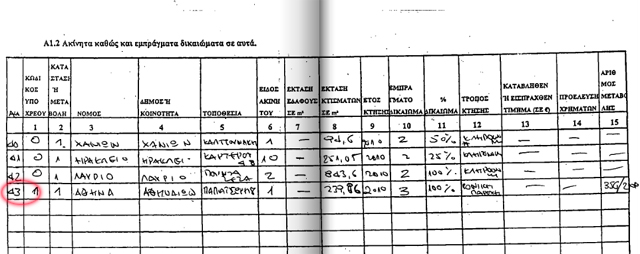 A1.2 Ακίνητα καθώς και εμπράγματα δικαιώματα σε αυτά.
Α/Α ΚΩΔΙΚΟΣ ΥΠΟΧΡΕΟΥ ΚΑΤΑΣΤΑΣΗ Ή ΜΕΤΑΒΟΛΗ ΝΟΜΟΣ ΔΗΜΟΣ Ή ΚΟΙΝΟΤΗΤΑ ΤΟΠΟΘΕΣΙΑ ΕΙΔΟΣ ΑΚΙΝΗΤΟΥ ΕΚΤΑΣΗ ΕΔΑΦΟΥΣ ΣΕ m² ΕΚΤΑΣΗ ΚΤΙΣΜΑΤΩΝ ΣΕ m² ΕΤΟΣ ΚΤΗΣΗΣ ΕΜΠΡΑΓΜΑΤΟ ΔΙΚΑΙΩΜΑ % ΔΙΚΑΙΩΜΑ ΤΡΟΠΟΣ ΚΤΗΣΗΣ ΚΑΤΑΒΛΗΘΕΝ Ή ΕΙΣΠΡΑΧΘΕΝ ΤΙΜΗΜΑ (ΣΕ €) ΠΡΟΕΛΕΥΣΗ ΧΡΗΜΑΤΩΝ ΑΡΙΘΜΟΣ ΜΕΤΑΒΟΛΗΣ
1 2 3 4 5 6 7 8 9 10 11 12 13 14 15
40 0 1 ΧΑΝΙΩΝ ΧΑΝΙΩΝ 1 — 94,6 2010 2 50% — —
41 0 1 ΗΡΑΚΛΕΙΟ ΗΡΑΚΛΕΙΟ 10 — 251,05 2010 2 25% — —
42 0 1 ΛΑΥΡΙΟ ΛΑΥΡΙΟ 2 — 843,6 2010 2 100% — —
43 1 1 ΑΘΗΝΑ ΑΘΗΝΑΙΩΝ 1 — 239,86 2010 3 100% ΓΟΝΙΚΗ ΠΑΡΟΧΗ — —